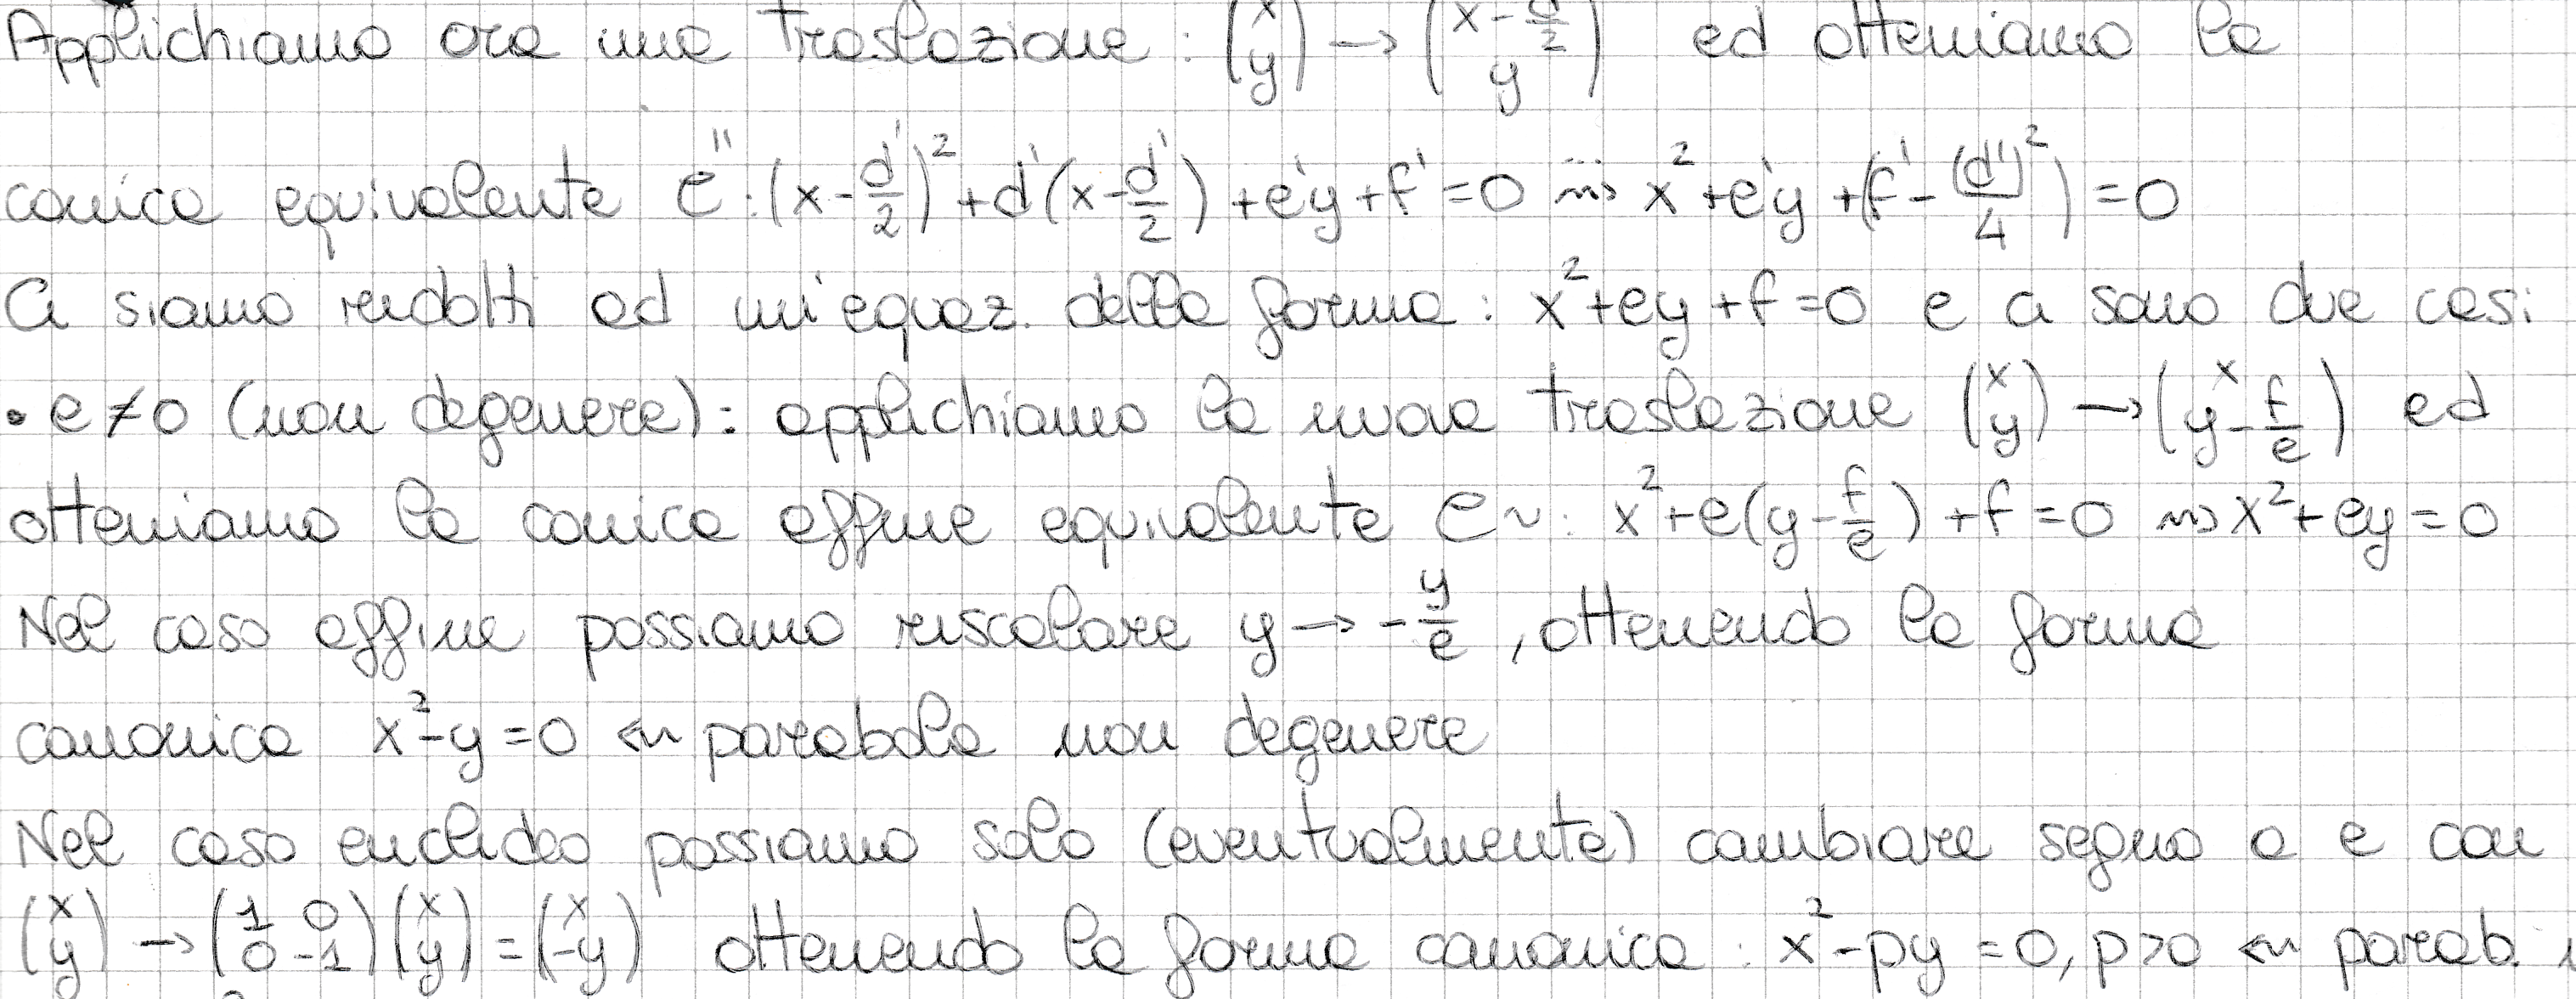 Applichiamo ora una traslazione : (x y) → (x - d'/2 y) ed otteniamo la
conica equivalente C'' : (x - d'/2)² + d'(x - d'/2) + e'y + f' = 0 ⇝ x² + e'y + (f' - (d')²/4) = 0
Ci siamo ridotti ad un'equaz. della forma : x² + ey + f = 0 e ci sono due casi
• e ≠ 0 (non degenere) : applichiamo la nuova traslazione (x y) → (x y - f/e) ed
otteniamo la conica affine equivalente C~ : x² + e(y - f/e) + f = 0 ⇝ x² + ey = 0
Nel caso affine possiamo riscalare y → - y/e , ottenendo la forma
canonica x² - y = 0 ⇜ parabola non degenere
Nel caso euclideo possiamo solo (eventualmente) cambiare segno a e con
(x y) → (1 0 0 -1)(x y) = (x -y) ottenendo la forma canonica : x² - py = 0, p > 0 ⇜ parab.